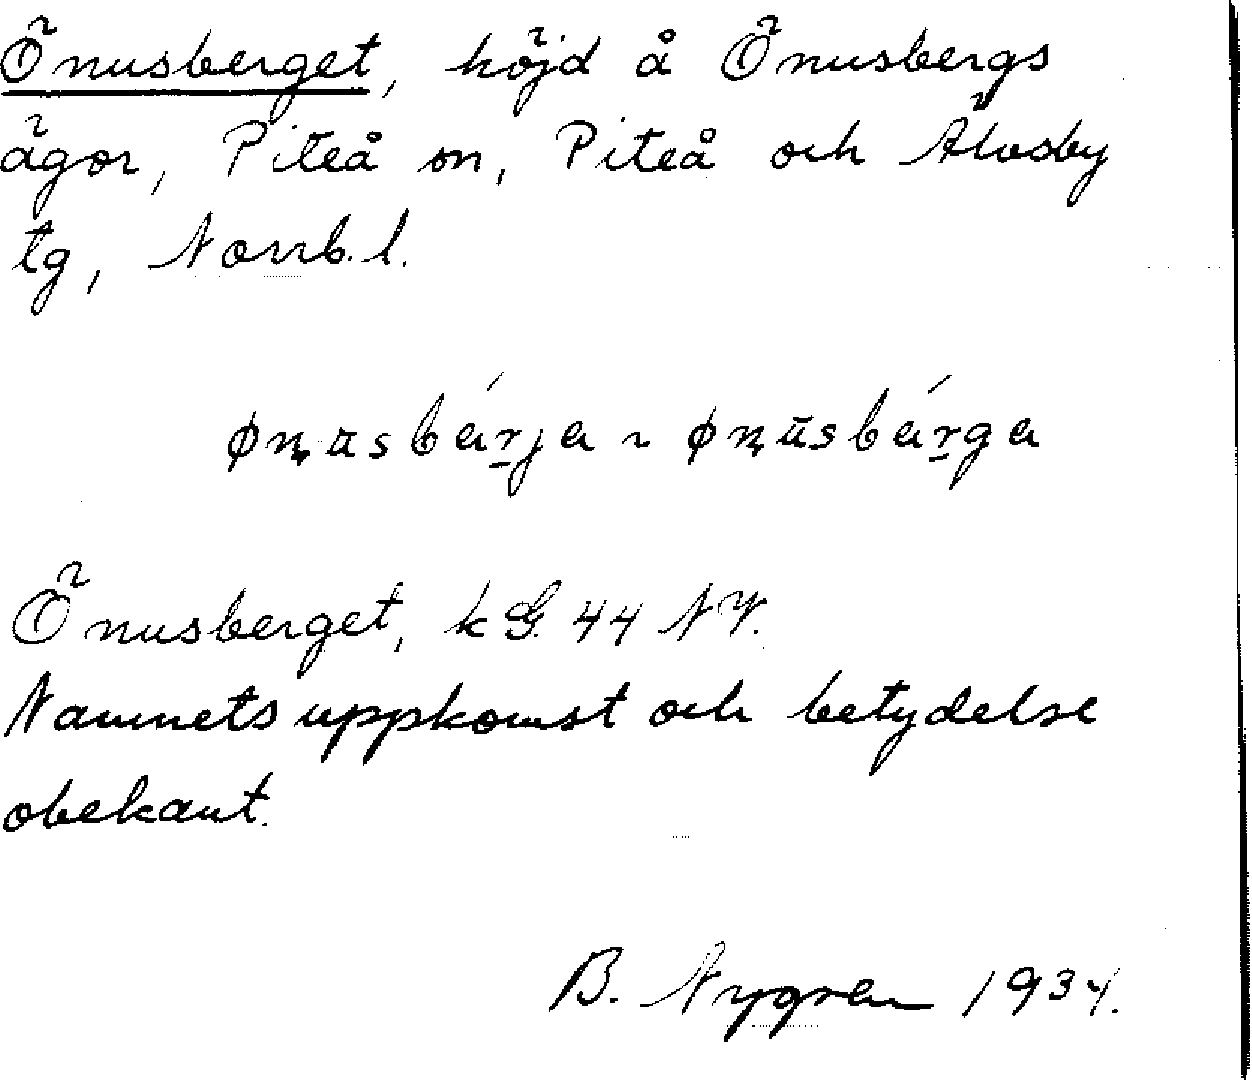 Önusberget, höjd å Önusbergs
ägor, Piteå sn, Piteå och Älvsby
tg, Norrb. l.
Önusberget, kG. 44 NV.
Namnets uppkomst och betydelse
obekant.
B. Nygren 1934.